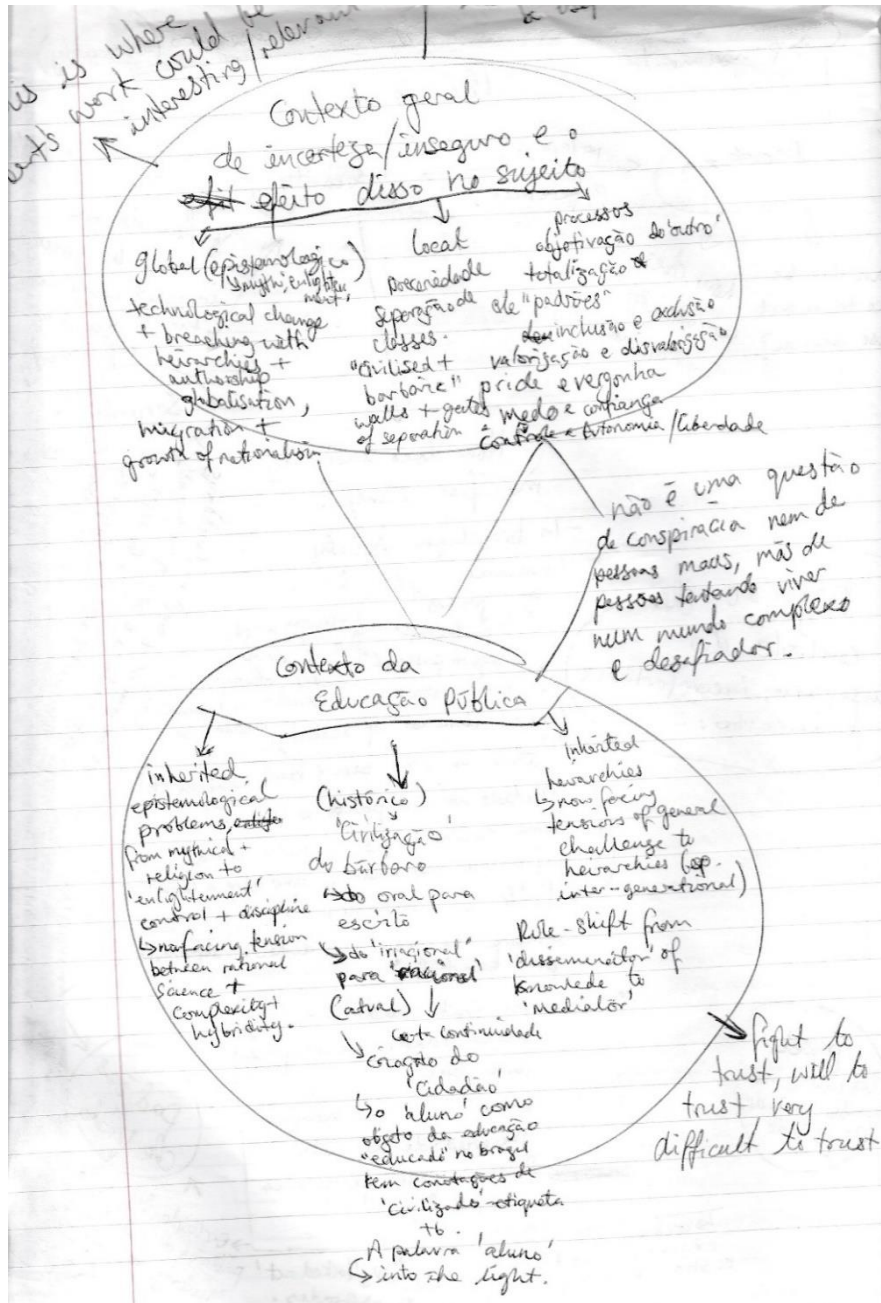 is is where
work could be
interesting/relevant
Contexto geral
de incerteza/inseguro e o
efeito disso no sujeito
global (epistemologico
↳ myth, enlighten
ment,
technological change
+ breaching with
heirarchies +
authorship
globalisation,
migration +
growth of nationalism
local
precariedade
separação de
classes.
"civilised +
barbaire"
walls + gates
of separation
processos
objetivação do 'outro'
totalização
de "padrões"
inclusão e exclusão
valorização e disvalorização
pride e vergonha
medo e confiança
controle e Autonomia/liberdade
não é uma questão
de conspiracia nem de
pessoas maus, mãs de
pessoas tentando viver
num mundo complexo
e desafiador.
Contexto da
Educação Pública
inherited
epistemological
problems,
from mythical +
religion to
'enlightenment'
control + discipline
↳ now facing tension
between rational
science +
complexity +
hybridity.
(histórico)
'Civilização'
do bárbaro
do oral para
escrito
↳ do 'irracional'
para 'racional'
(atual)
certa continuidade
criação do
'cidadão'
↳ o 'aluno' como
objeto da educação
"educado" no brazil
tem conotações de
'civilizado' - etiqueta
tb.
A palavra 'aluno'
↳ into the light.
inherited
heirarchies
↳ now facing
tensions of general
challenge to
heirarchies (esp.
inter-generational)
Role-shift from
'disseminator' of
knowlede to
'mediator'
fight to
trust, will to
trust very
difficult to trust